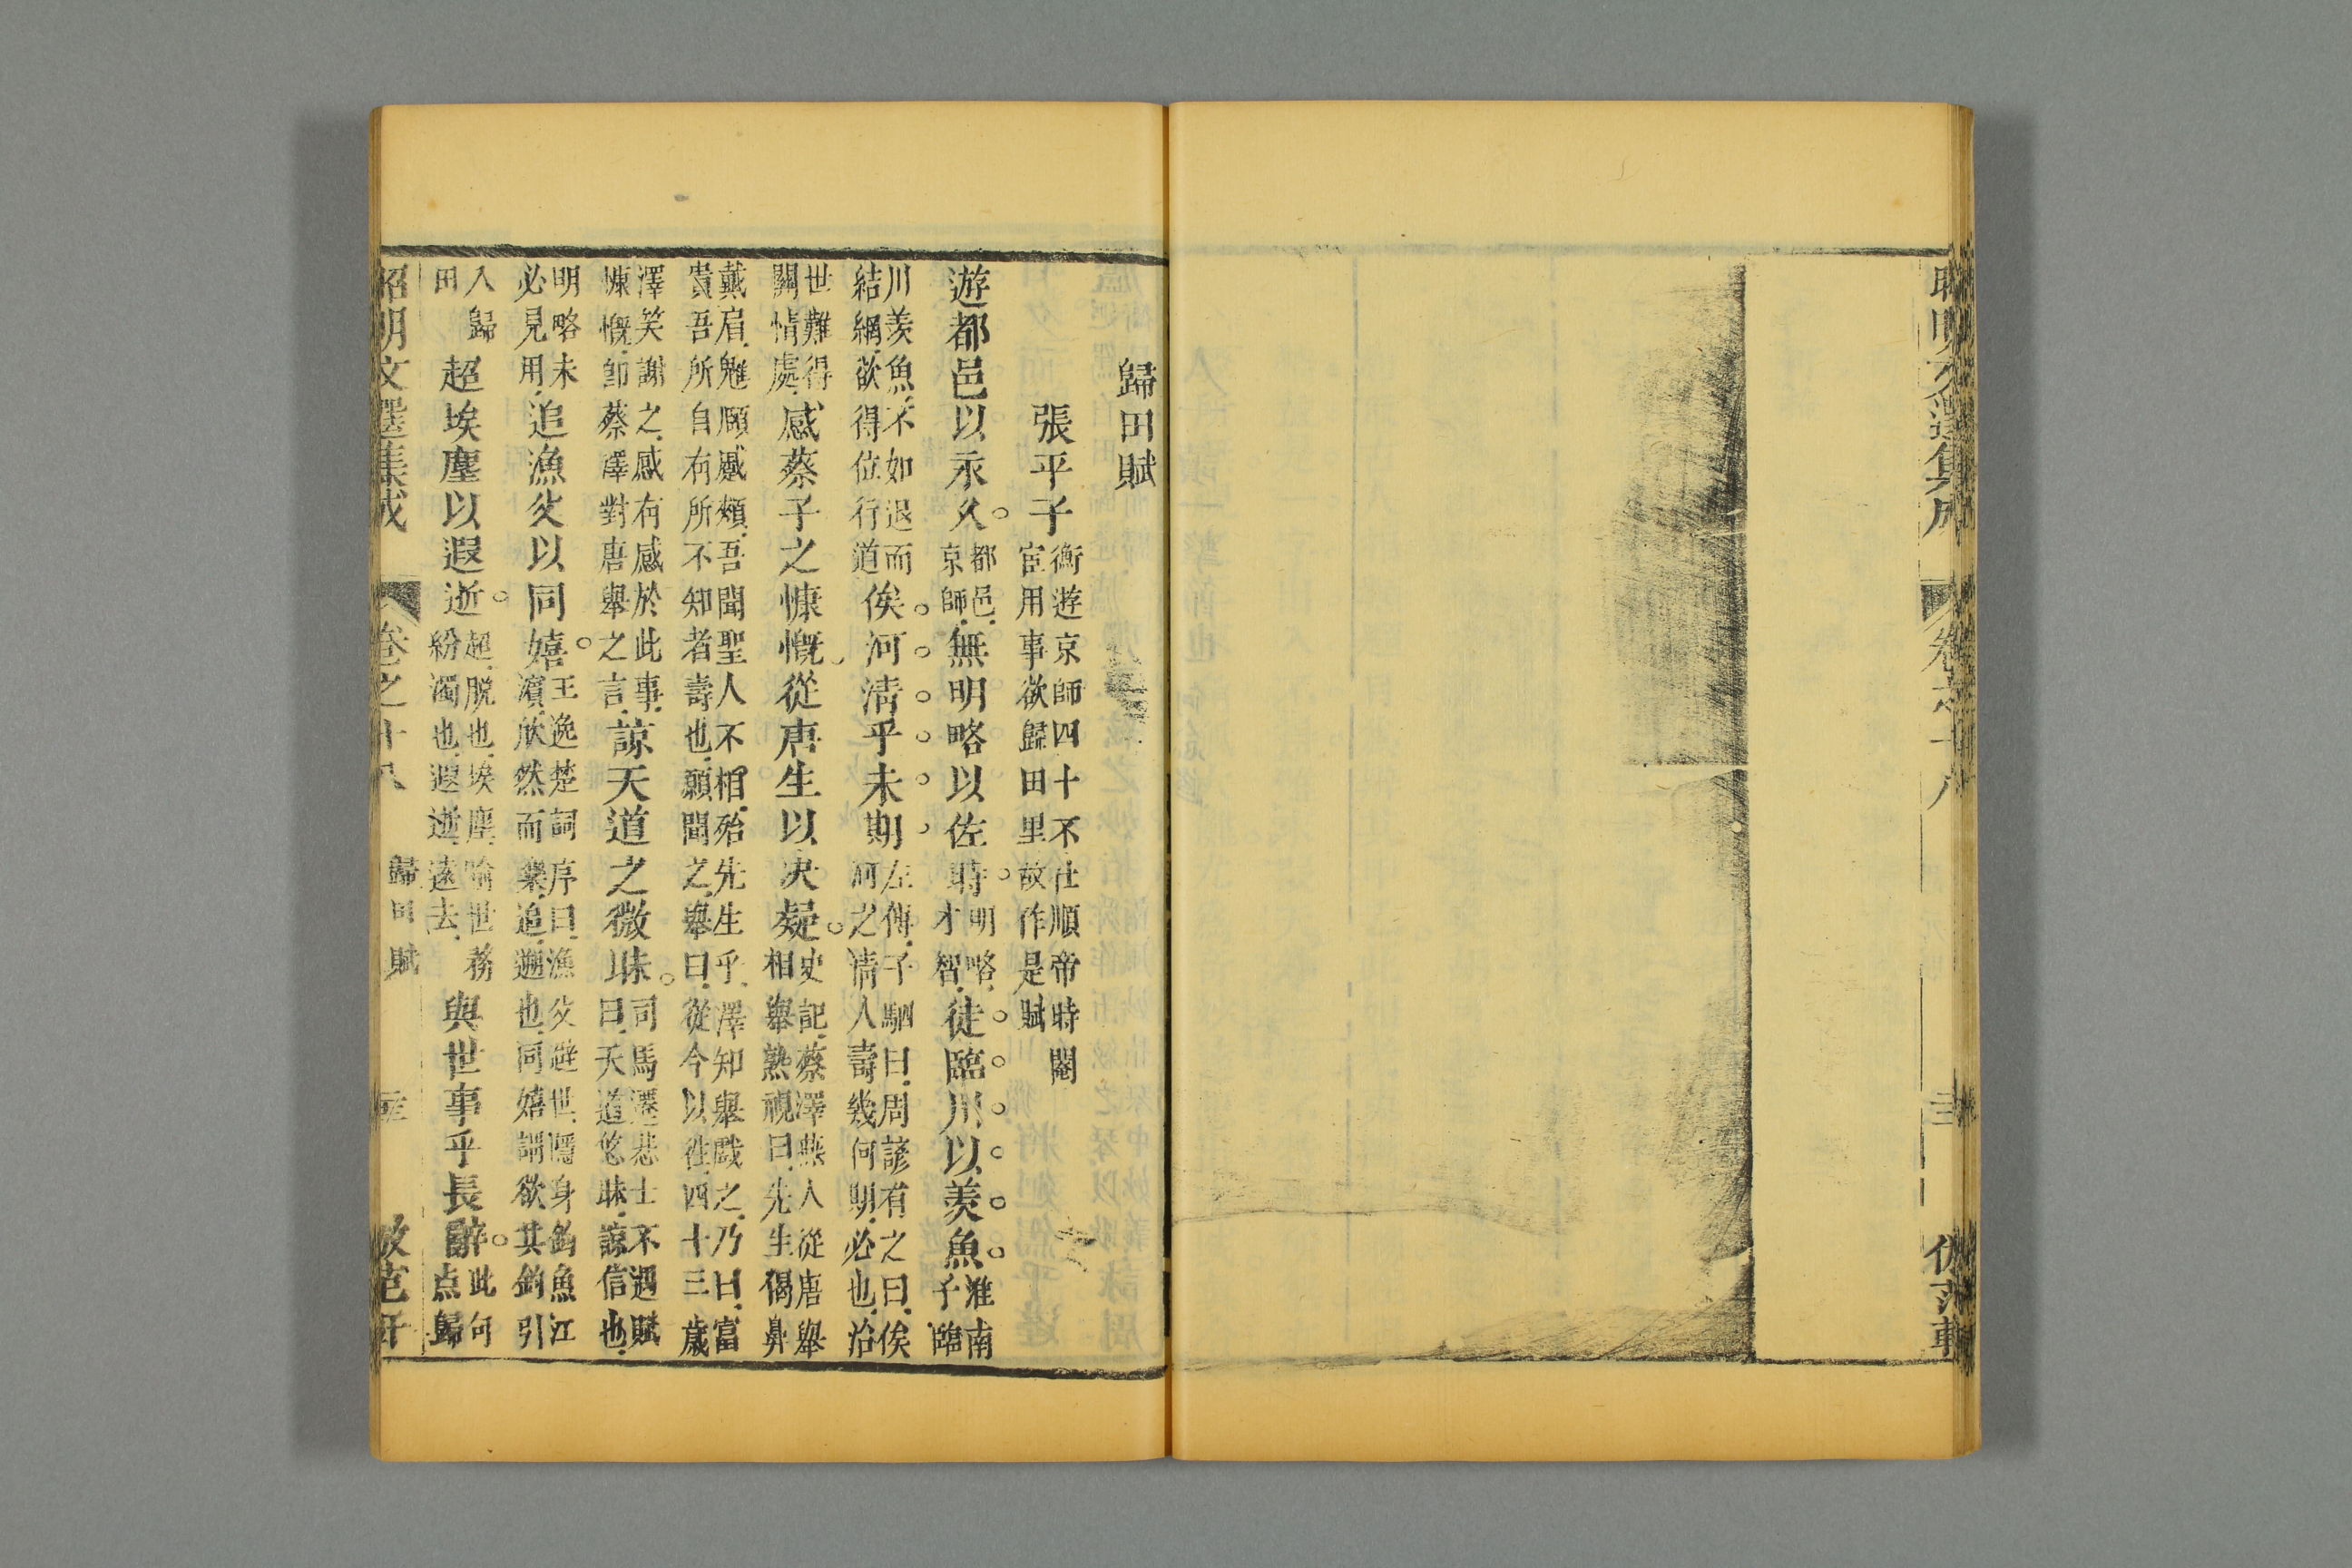 昭明文選集成
卷之十八
歸田賦
張平子 衡遊京師四十不仕順帝時閹
宦用事欲歸田里故作是賦
遊都邑以永久 都邑
京師 無明略以佐時 明略
才智 徒臨川以羨魚 淮南
子臨
川羨魚不如退而
結網欲得位行道 俟河清乎未期 左傳子駟曰周諺有之曰俟
河之清人壽幾何期必也治
世難得
關情處 感蔡子之慷慨從唐生以决疑 史記蔡澤燕人從唐舉
相舉熟視曰先生偈鼻
戴肩魋顏蹙頞吾聞聖人不相殆先生乎澤知舉戲之乃曰富
貴吾所自有所不知者壽也願聞之舉曰從今以往四十三歲
澤笑謝之感有感於此事
慷慨卽蔡澤對唐舉之言 諒天道之微昧 司馬遷悲士不遇賦
曰天道悠昧諒信也
明略未
必見用 追漁父以同嬉 王逸楚詞序曰漁父避世隱身釣魚江
濱欣然而樂追遡也同嬉謂欲其釣引
人歸
田 超埃塵以遐逝 超脱也埃塵喻世務
紛濁也遐逝遠去 與世事乎長辭 此何
点歸
昭明文選集成 卷之十八 歸田賦